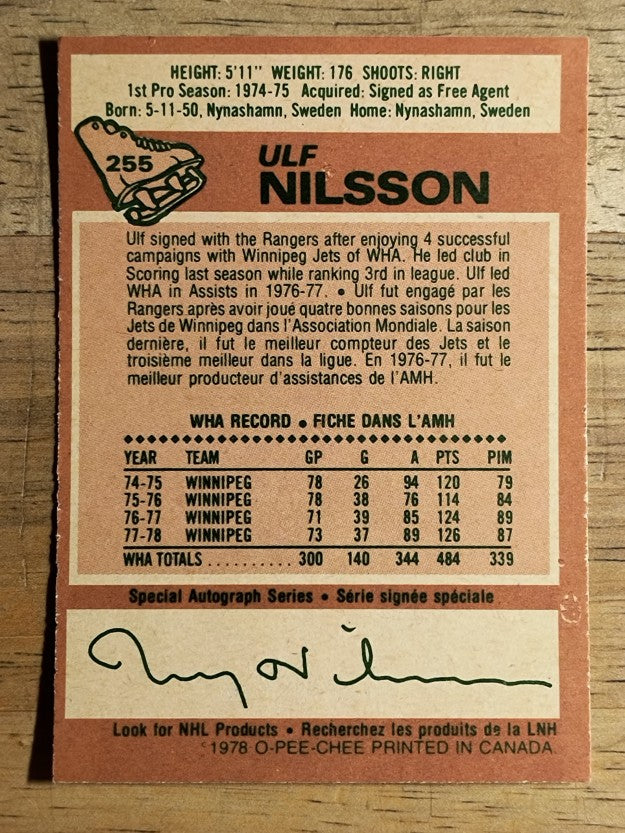 HEIGHT: 5'11" WEIGHT: 176 SHOOTS: RIGHT
1st Pro Season: 1974-75 Acquired: Signed as Free Agent
Born: 5-11-50, Nynashamn, Sweden Home: Nynashamn, Sweden
255
ULF
NILSSON
Ulf signed with the Rangers after enjoying 4 successful
campaigns with Winnipeg Jets of WHA. He led club in
Scoring last season while ranking 3rd in league. Ulf led
WHA in Assists in 1976-77. • Ulf fut engagé par les
Rangers après avoir joué quatre bonnes saisons pour les
Jets de Winnipeg dans l'Association Mondiale. La saison
dernière, il fut le meilleur compteur des Jets et le
troisième meilleur dans la ligue. En 1976-77, il fut le
meilleur producteur d'assistances de l'AMH.
WHA RECORD • FICHE DANS L'AMH
YEAR TEAM GP G A PTS PIM
74-75 WINNIPEG 78 26 94 120 79
75-76 WINNIPEG 78 38 76 114 84
76-77 WINNIPEG 71 39 85 124 89
77-78 WINNIPEG 73 37 89 126 87
WHA TOTALS .......... 300 140 344 484 339
Special Autograph Series • Série signée spéciale
Look for NHL Products • Recherchez les produits de la LNH
©1978 O-PEE-CHEE PRINTED IN CANADA